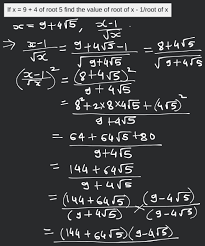 If x = 9 + 4 of root 5 find the value of root of x - 1/root of x
x = 9+4√5, x-1/√x
⇒ x-1/√x = 9+4√5-1/√9+4√5 = 8+4√5/√9+4√5
(x-1/√x)² = (8+4√5)²/9+4√5
= 8²+2×8×4√5+(4√5)²/9+4√5
= 64+64√5+80/9+4√5
= 144+64√5/9+4√5
= (144+64√5)/(9+4√5) × (9-4√5)/(9-4√5)
= (144+64√5)(9-4√5)